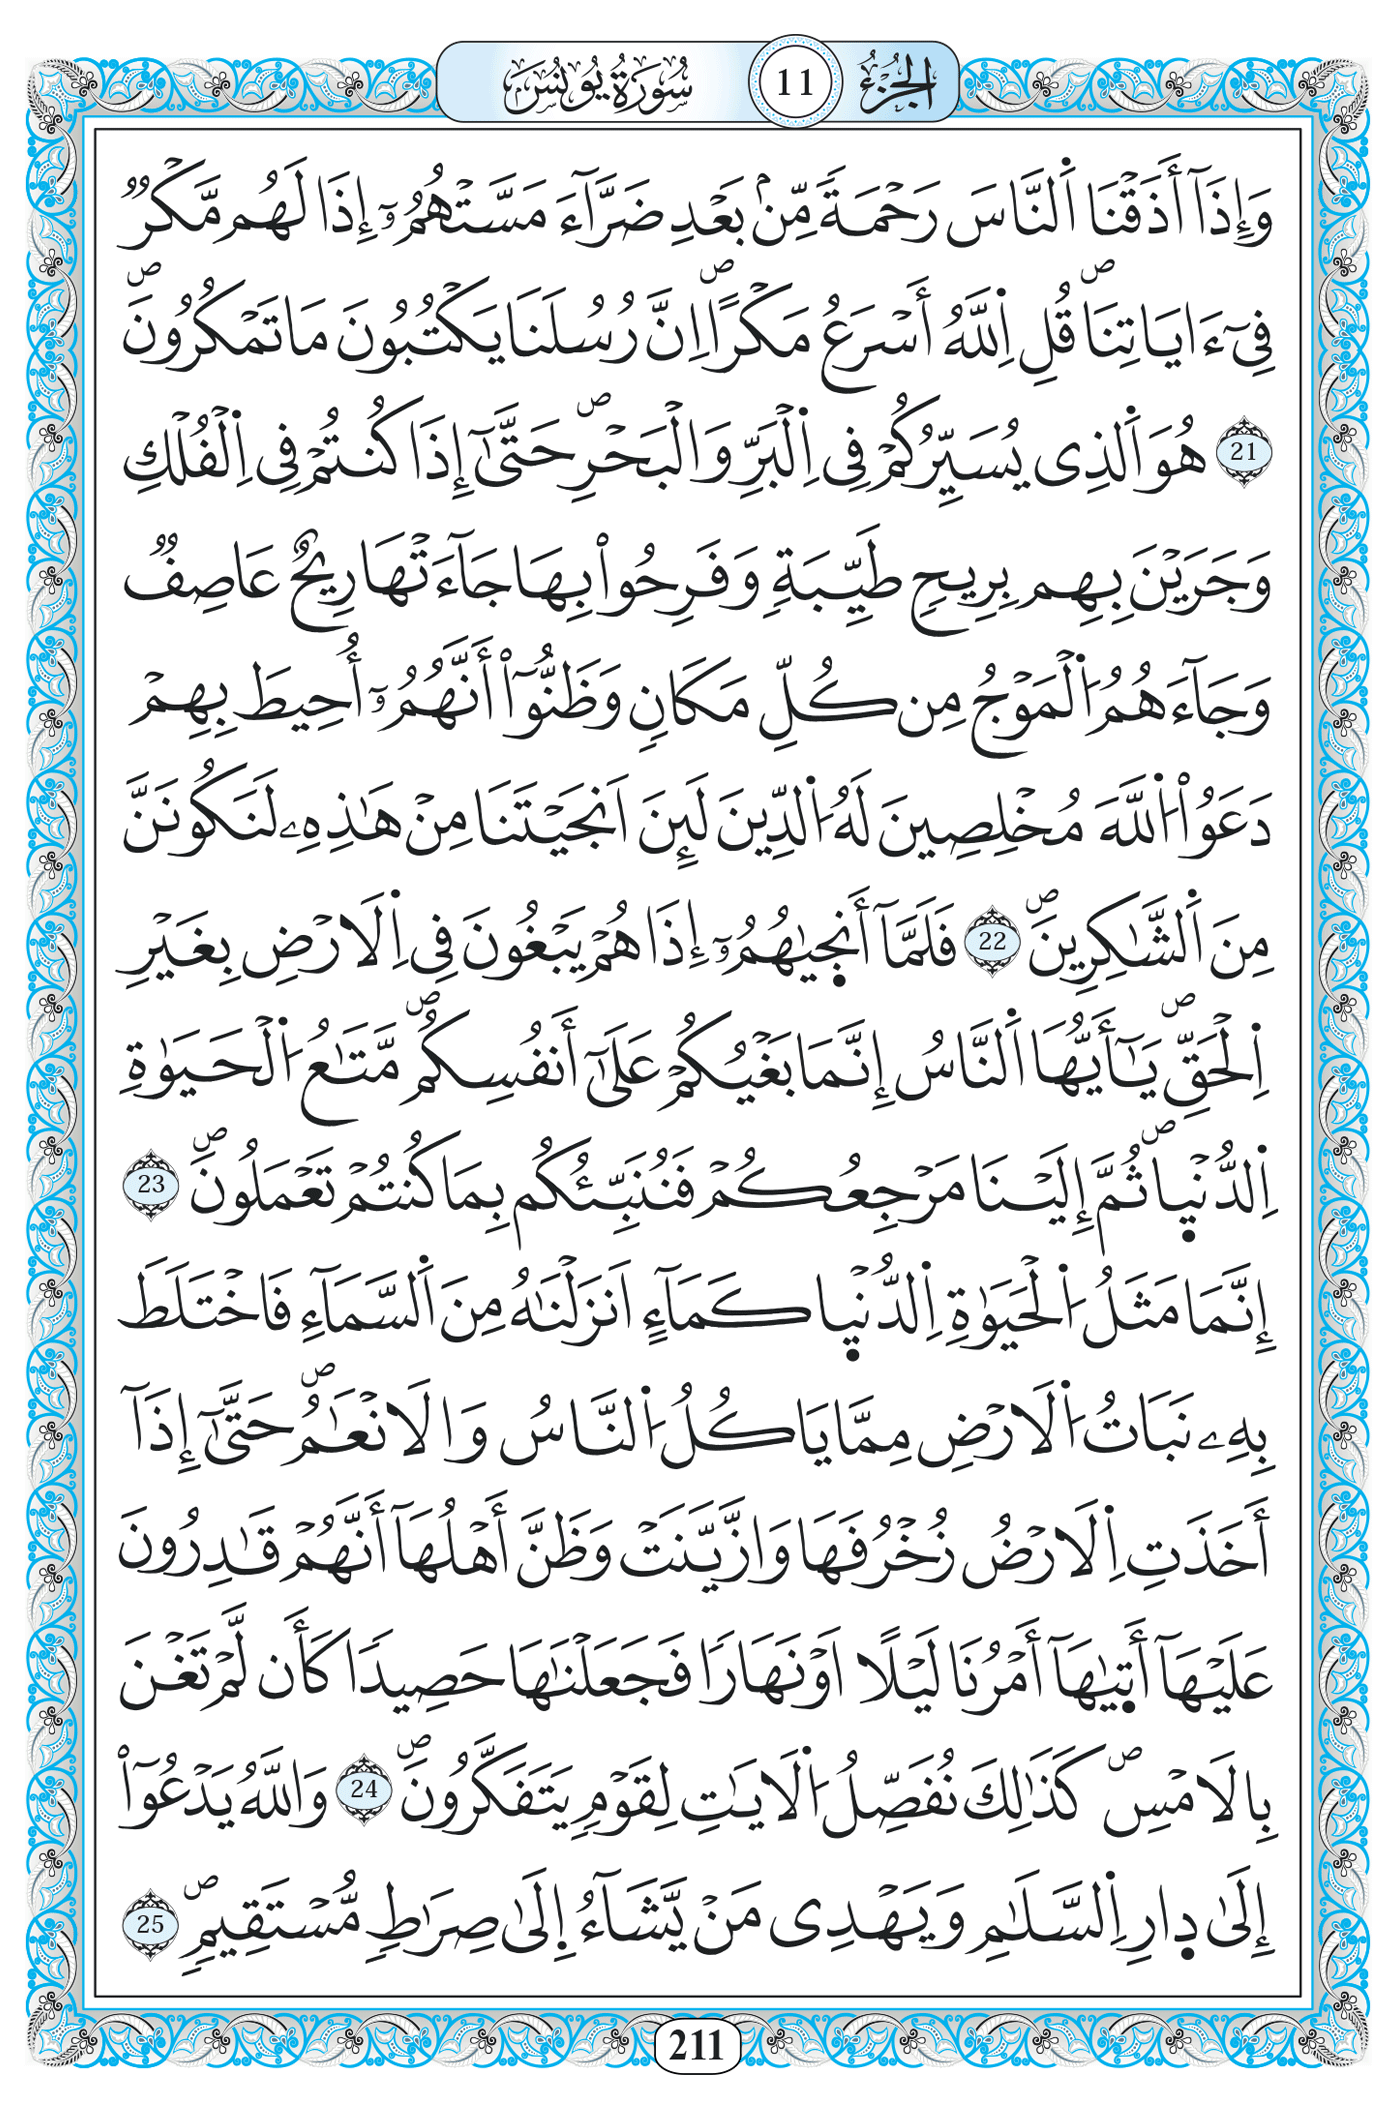 الجزء 11 سورة يونس
وَإِذَآ أَذَقْنَا اَ۬لنَّاسَ رَحْمَةٗ مِّنۢ بَعْدِ ضَرَّآءَ مَسَّتْهُمُۥٓ إِذَا لَهُم مَّكْرٞ
فِےٓ ءَايَاتِنَاۖ قُلِ اِ۬للَّهُ أَسْرَعُ مَكْراًۖ اِنَّ رُسُلَنَا يَكْتُبُونَ مَا تَمْكُرُونَۖ
21 هُوَ اَ۬لذِے يُسَيِّرُكُمْ فِے اِ۬لْبَرِّ وَالْبَحْرِۖ حَتَّىٰٓ إِذَا كُنتُمْ فِے اِ۬لْفُلْكِ
وَجَرَيْنَ بِهِم بِرِيحٖ طَيِّبَةٖ وَفَرِحُواْ بِهَا جَآءَتْهَا رِيحٌ عَاصِفٞ
وَجَآءَهُمُ اُ۬لْمَوْجُ مِن كُلِّ مَكَانٖ وَظَنُّوٓاْ أَنَّهُمُۥٓ أُحِيطَ بِهِمْ
دَعَوُاْ اُ۬للَّهَ مُخْلِصِينَ لَهُ اُ۬لدِّينَ لَئِنَ اَنجَيْتَنَا مِنْ هَٰذِهِۦ لَنَكُونَنَّ
مِنَ اَ۬لشَّٰكِرِينَۖ 22 فَلَمَّآ أَنج۪يٰهُمُۥٓ إِذَا هُمْ يَبْغُونَ فِے اِ۬لَارْضِ بِغَيْرِ
اِ۬لْحَقِّۖ يَٰٓأَيُّهَا اَ۬لنَّاسُ إِنَّمَا بَغْيُكُمْ عَلَىٰٓ أَنفُسِكُمۖ مَّتَٰعُ اُ۬لْحَيَوٰةِ
اِ۬لدُّنْي۪اۖ ثُمَّ إِلَيْنَا مَرْجِعُكُمْ فَنُنَبِّئُكُم بِمَا كُنتُمْ تَعْمَلُونَۖ 23
إِنَّمَا مَثَلُ اُ۬لْحَيَوٰةِ اِ۬لدُّنْي۪ا كَمَآءٍ اَنزَلْنَٰهُ مِنَ اَ۬لسَّمَآءِ فَاخْتَلَطَ
بِهِۦ نَبَاتُ اُ۬لَارْضِ مِمَّا يَاكُلُ اُ۬لنَّاسُ وَالَانْعَٰمُۖ حَتَّىٰٓ إِذَآ
أَخَذَتِ اِ۬لَارْضُ زُخْرُفَهَا وَازَّيَّنَتْ وَظَنَّ أَهْلُهَآ أَنَّهُمْ قَٰدِرُونَ
عَلَيْهَآ أَت۪يٰهَآ أَمْرُنَا لَيْلًا اَوْ نَهَاراٗ فَجَعَلْنَٰهَا حَصِيداٗ كَأَن لَّمْ تَغْنَ
بِالَامْسِۖ كَذَٰلِكَ نُفَصِّلُ اُ۬لَايَٰتِ لِقَوْمٖ يَتَفَكَّرُونَۖ 24 وَاللَّهُ يَدْعُوٓاْ
إِلَىٰ د۪ارِ اِ۬لسَّلَٰمِ وَيَهْدِے مَنْ يَّشَآءُ اِ۪لَىٰ صِرَٰطٖ مُّسْتَقِيمٖۖ 25
211